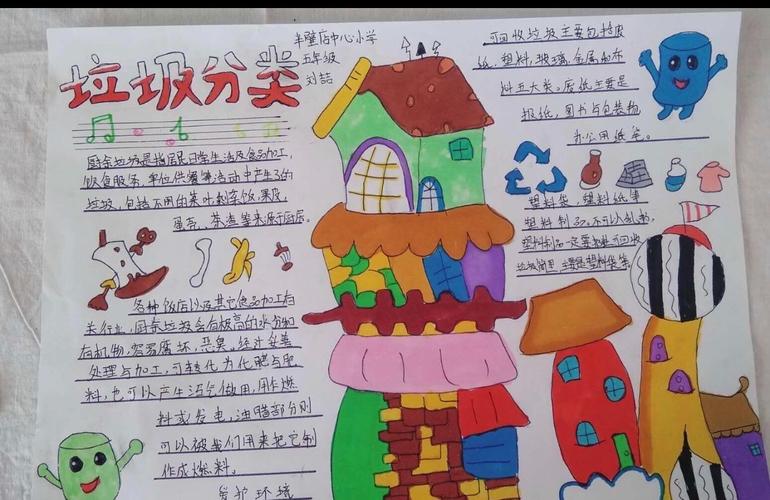 垃圾分类
半壁店中心小学
五年级
刘喆
厨余垃圾是指居民日常生活及食品加工,
饮食服务,单位供餐等活动中产生的
垃圾,包括不用的菜叶剩饭,果皮,
蛋壳、茶渣等来源于厨房。
各种饭店以及其它食品加工有
关行业,厨余垃圾含有极高的水分和
有机物,容易腐坏,恶臭。经过妥善
处理与加工,可转化为化肥与肥
料,也可以产生沼气做用,用作燃
料或发电,油脂部分则
可以被我们用来把它制
作成燃料。
爱护环境
可回收垃圾主要包括废
纸,塑料,玻璃,金属和布
料五大类。废纸主要是
报纸,图书与包装物
办公用纸等。
塑料袋,塑料纸等
塑料制品。不可以乱扔,
塑料制品一定要
垃圾筒里,主要是塑料袋等